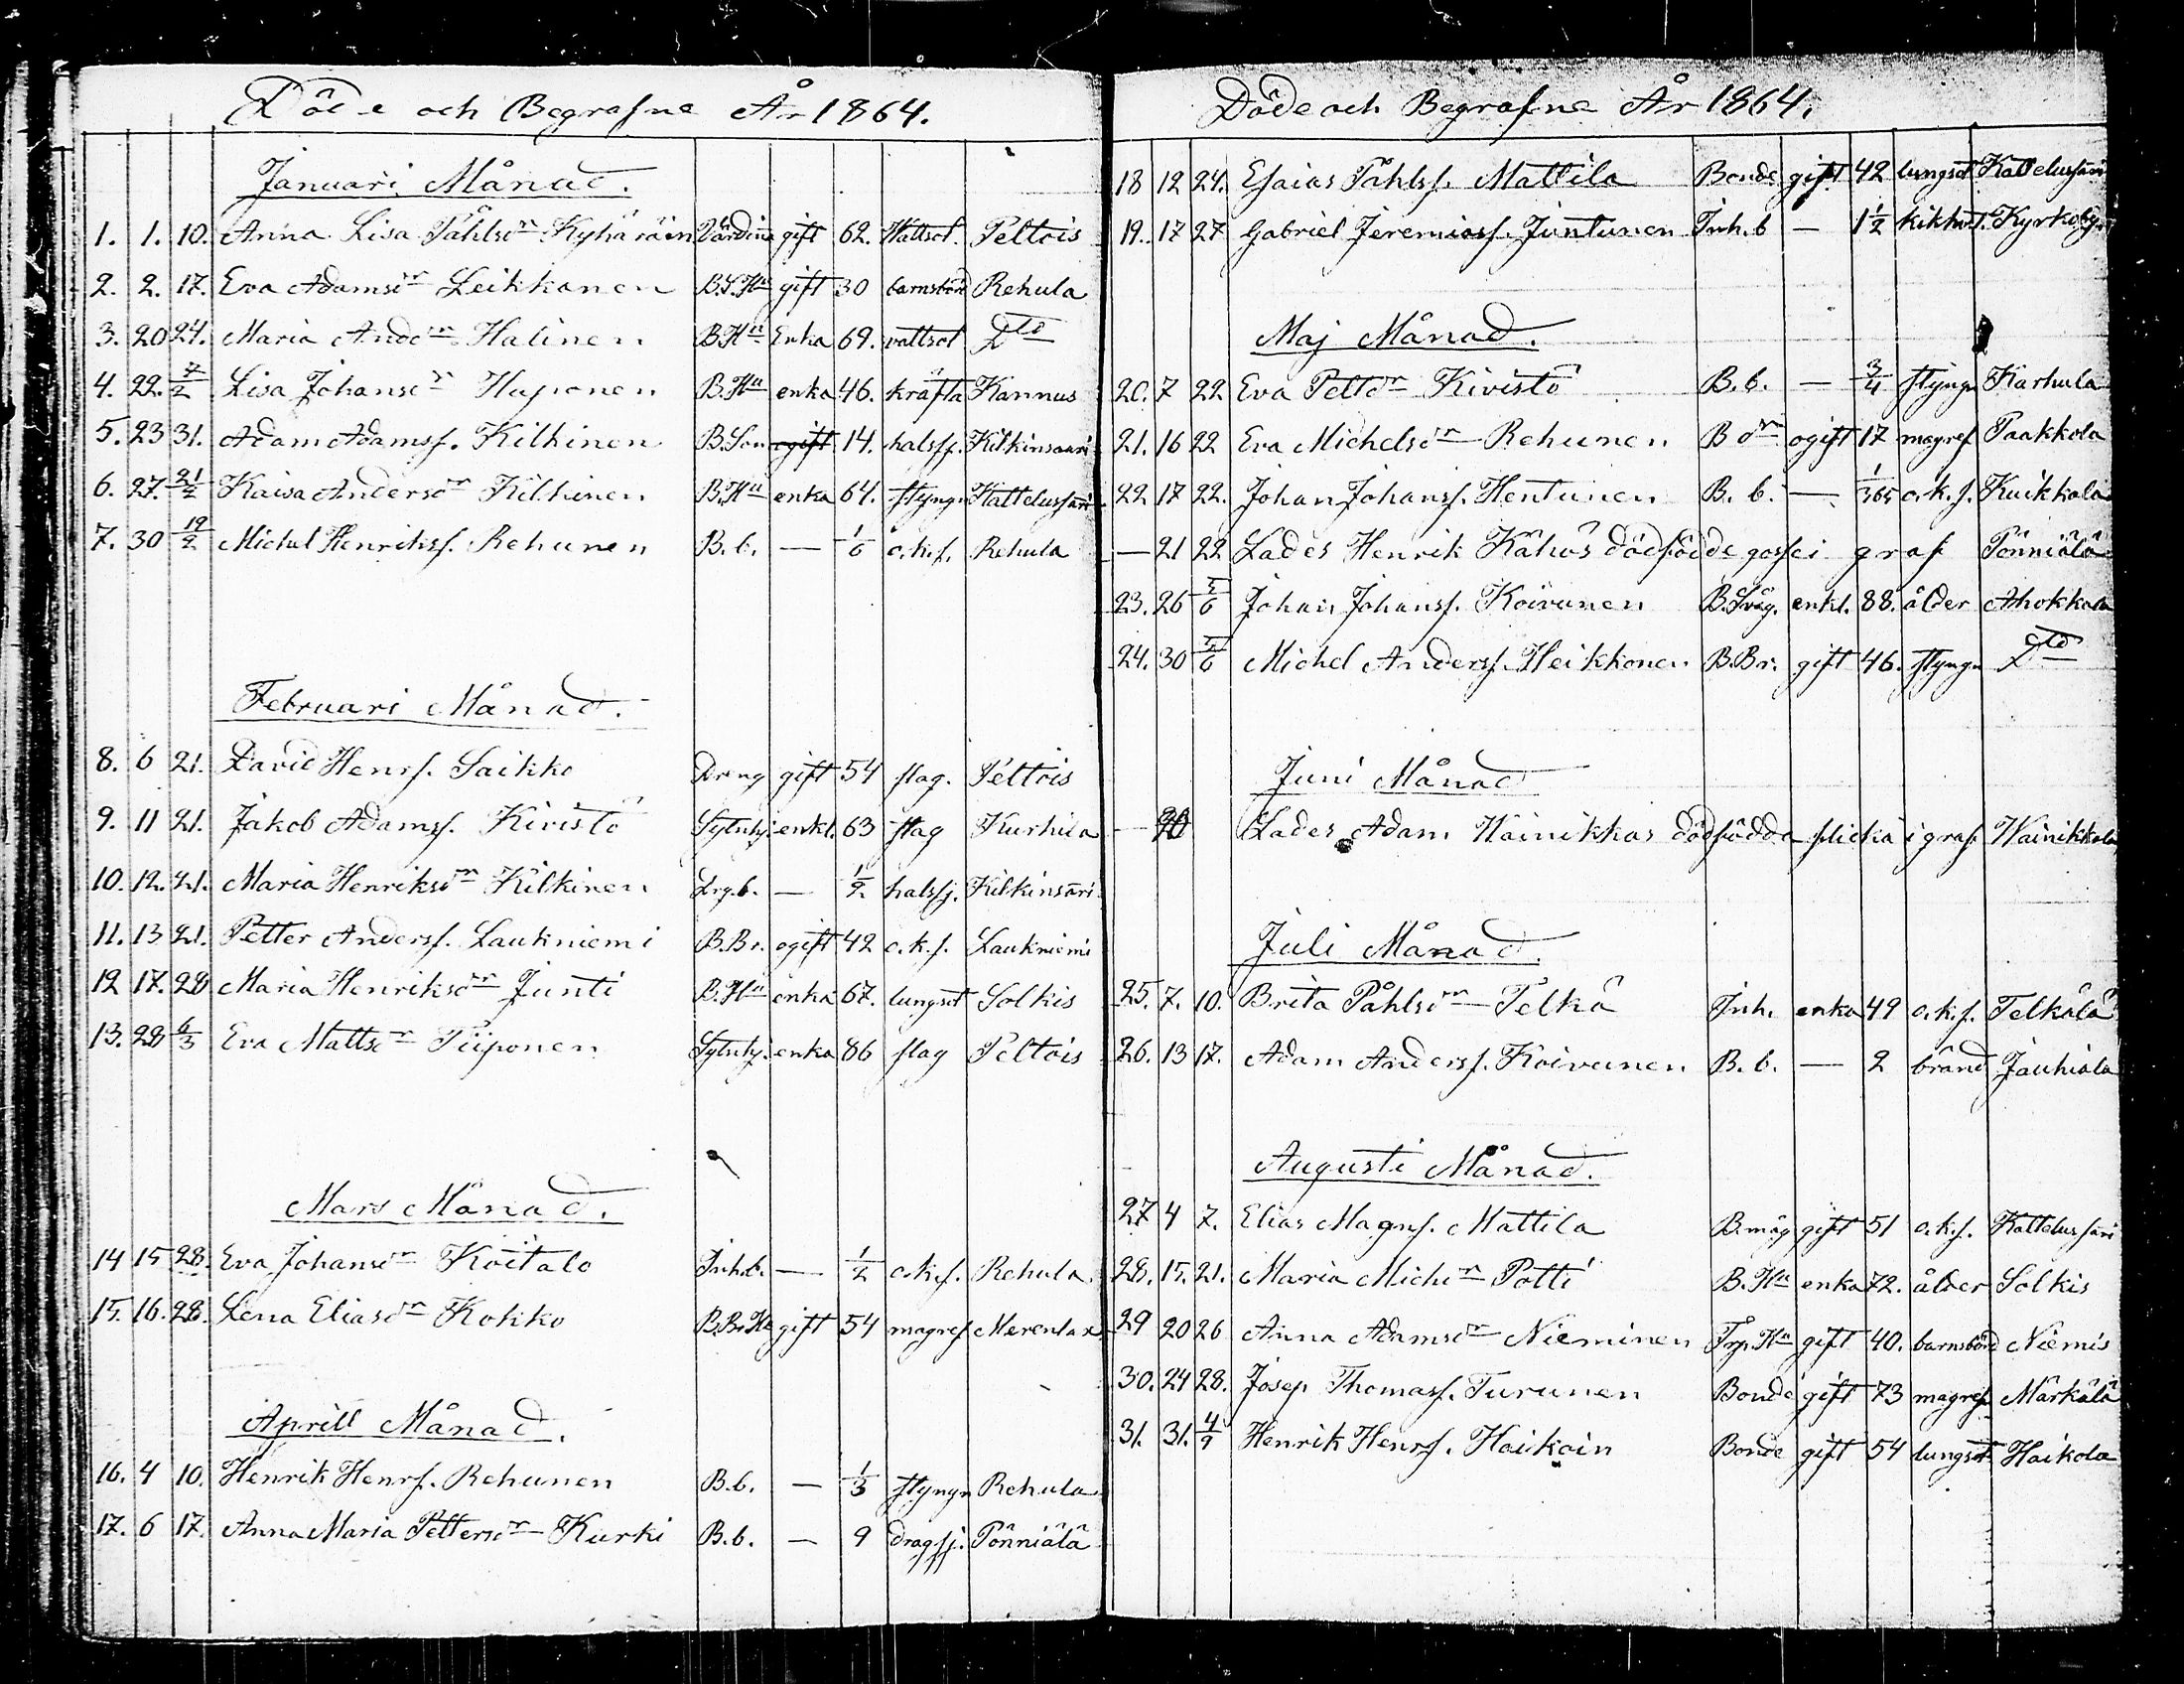 Döde och Begrafne År 1864.
Januari Månad.
1. 1. 10. Anna Lisa Påhlsdr Kyhäräin Värdinna gift 62. Wattsot. Peltois
2. 2. 17. Eva Adamsdr Leikkanen B.S.Hu gift 30 barnsbörd Rehula
3. 20 24. Maria Andsdr Halinen B.Hu Enka 69. vattsot Dto
4. 22. 7/2 Lisa Johansdr Huponen B.Hu enka 46. kräfta Kannus
5. 23 31. Adam Adamsf. Kilkinen B.Son ogift 14. halsfj. Kilkinsaari
6. 27. 21/2 Kaisa Andersdr Kilkinen B.Hu enka 64. styngn Kattelussari
7. 30 19/2 Michel Henriksf. Rehunen B.b. — 1/6 o.k.s. Rehula
Februari Månad.
8. 6 21. David Henrs. Saikko Dreng gift 54 slag. Peltois
9. 11 21. Jakob Adamsf. Kivistö Sytnhj. enkl. 63 slag Kurhila
10. 12. 21. Maria Henriksdr Kilkinen Drg.b. — 1/2 halssj. Kilkinsari
11. 13 21. Petter Andersf. Laukniemi B.Br. ogift 42 o.k.s. Laukniemi
12 17. 28 Maria Henriksdr Junti B.Hu enka 67. lungsot Solkis
13. 28 6/3 Eva Mattsdr Piiponen Sytnhj. enka 86 slag Peltois
Mars Månad.
14 15 28. Eva Johansdr Koitalo Inh.b. — 1/2 o.k.s. Rehula
15. 16. 28. Lena Eliasdr Kokko B.Br.Hu gift 54 magref Merenlax
Aprill Månad.
16. 4 10. Henrik Henrs. Rehunen B.b. — 1/3 styngn Rehula
17. 6 17. Anna Maria Pettersdr Kurki B.b. — 9 dragsj. Pönniälä
Döde och Begrafne År 1864.
18 12 24. Esaias Påhlsf. Mattila Bonde gift 42 lungsot Kattelussari
19. 17 27 Gabriel Jeremiasf. Juntunen Inh.b — 1 1/2 kikhost. Kyrkoby
Maj Månad.
20. 7 22 Eva Pettdr Kivistö B.b. — 3/4 styngn Karhula
21. 16 22 Eva Michelsdr Rehunen B dr ogift 17 magref Paakkola
22 17 22. Johan Johansf. Hentunen B.b. — 1/365 o.k.s. Kuikkala
— 21 22 Lades Henrik Kähös dödfödde gosse i graf Pönniälä
23. 26 5/6 Johan Johansf. Koivunen B.Svåg. enkl. 88. ålder Ahokkala
24. 30 5/6 Michel Andersf. Heikkonen B.Br. gift 46. styngn Dto
Juni Månad
— Lades Adam Wäinikkas dödfödda flicka i graf Wainikkala
Juli Månad.
25. 7. 10. Brita Påhlsdr Telkä Inh. enka 49 o.k.s. Telkälä
26. 13 17. Adam Andersf. Koivunen B.b. — 2 bränd Jauhiala
Augusti Månad.
27 4 7. Elias Magnsf. Mattila B.måg gift 51 o.k.s. Kattelussari
28. 15. 21. Maria Michsdr Potti B.Hu enka 72. ålder Solkis
29 20 26 Anna Adamsdr Nieminen Trp.Hu gift 40. barnsbörd Niemis
30. 24 28. Josep Thomasf. Turunen Bonde gift 73 magref Märkälä
31. 31. 4/9 Henrik Henrs. Haikoin Bonde gift 54 lungsot Haikola